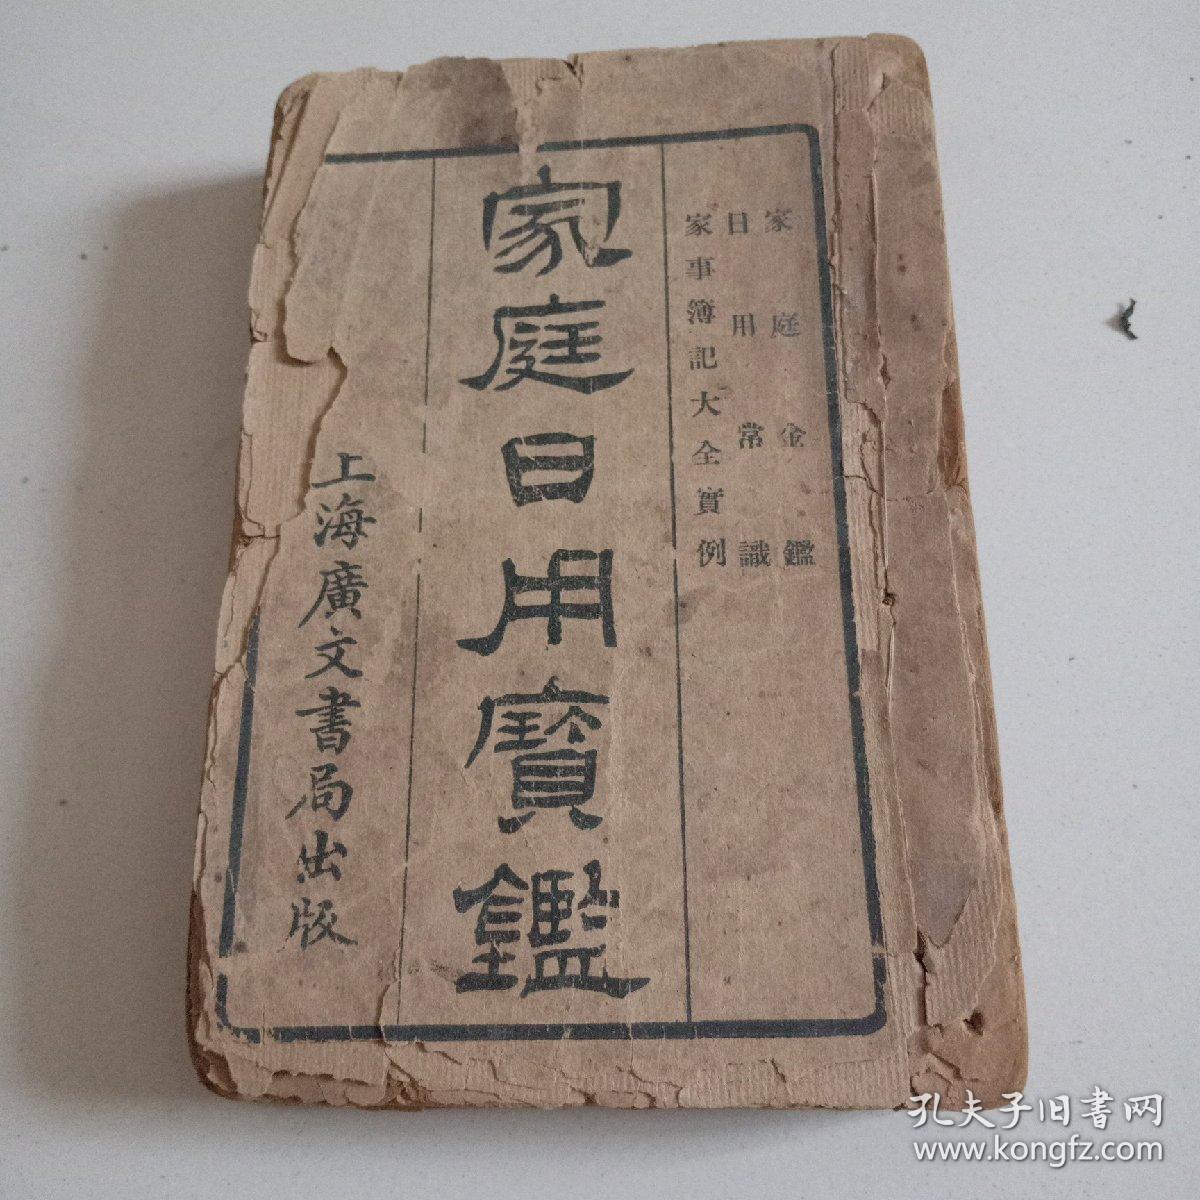 家庭金鑑
日用常識
家事簿記大全實例
家庭日用寶鑑
上海廣文書局出版
孔夫子旧書网
www.kongfz.com